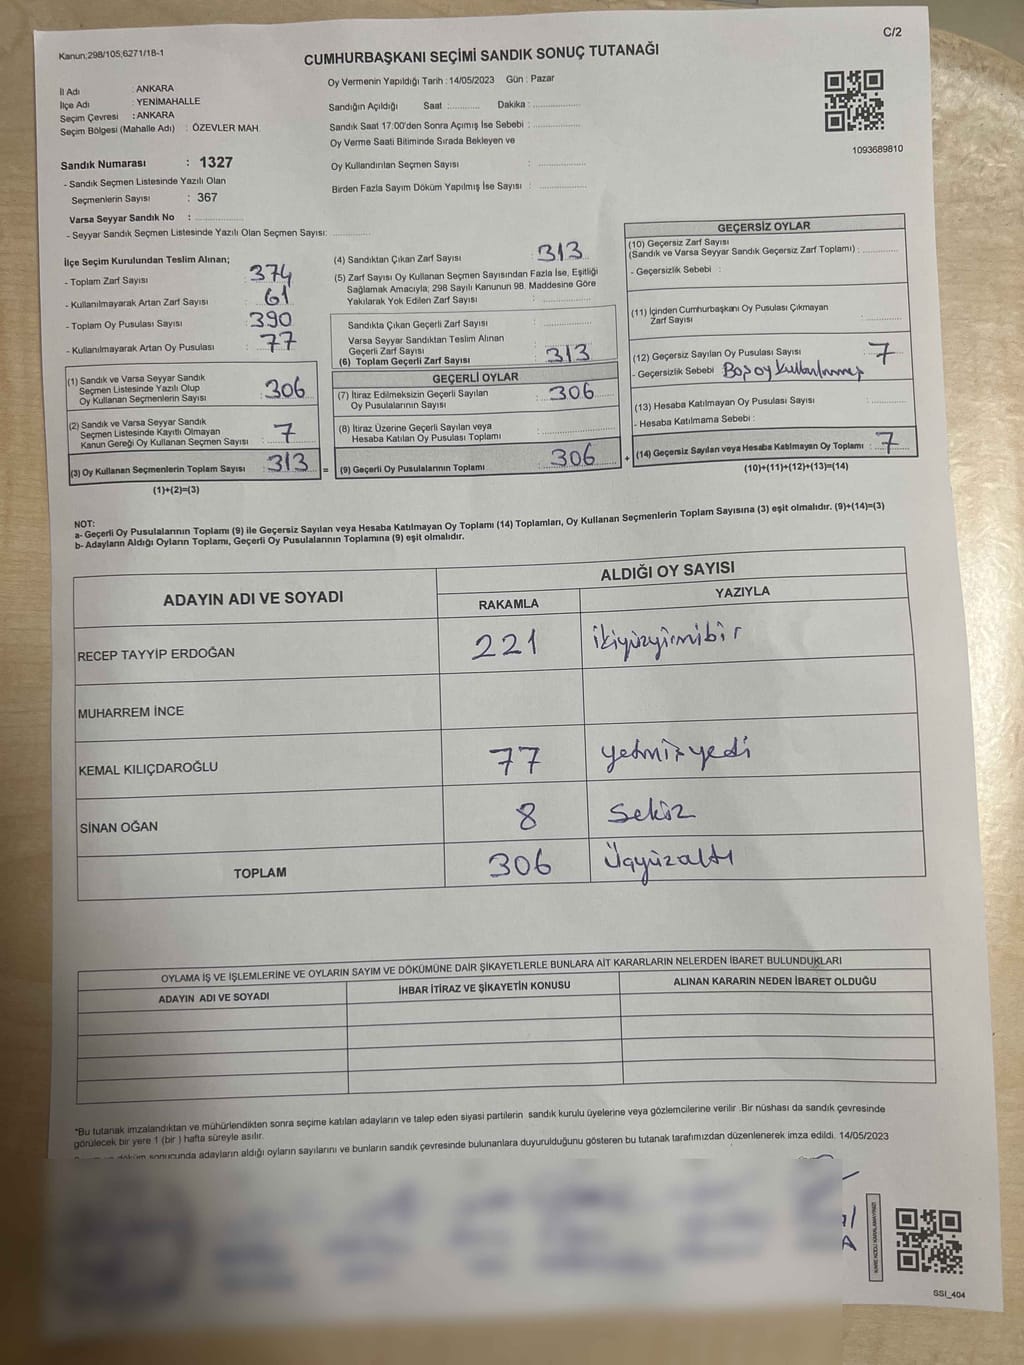 Kanun;298/105,6271/18-1
C/2
CUMHURBAŞKANI SEÇİMİ SANDIK SONUÇ TUTANAĞI
Oy Vermenin Yapıldığı Tarih : 14/05/2023 Gün : Pazar
İl Adı : ANKARA
İlçe Adı : YENİMAHALLE
Seçim Çevresi : ANKARA
Seçim Bölgesi (Mahalle Adı) : ÖZEVLER MAH.
Sandığın Açıldığı Saat :........... Dakika : .................
Sandık Saat 17:00'den Sonra Açımış İse Sebebi : .................
Oy Verme Saati Bitiminde Sırada Bekleyen ve
Oy Kullandırılan Seçmen Sayısı : .................
Birden Fazla Sayım Döküm Yapılmış İse Sayısı : .................
1093689810
Sandık Numarası : 1327
- Sandık Seçmen Listesinde Yazılı Olan
Seçmenlerin Sayısı : 367
Varsa Seyyar Sandık No : .................
- Seyyar Sandık Seçmen Listesinde Yazılı Olan Seçmen Sayısı: .............
İlçe Seçim Kurulundan Teslim Alınan;
- Toplam Zarf Sayısı : 374
- Kullanılmayarak Artan Zarf Sayısı : 61
- Toplam Oy Pusulası Sayısı : 390
- Kullanılmayarak Artan Oy Pusulası : 77
(1) Sandık ve Varsa Seyyar Sandık
Seçmen Listesinde Yazılı Olup
Oy Kullanan Seçmenlerin Sayısı : 306
(2) Sandık ve Varsa Seyyar Sandık
Seçmen Listesinde Kayıtlı Olmayan
Kanun Gereği Oy Kullanan Seçmen Sayısı : 7
(3) Oy Kullanan Seçmenlerin Toplam Sayısı : 313 =
(1)+(2)=(3)
(4) Sandıktan Çıkan Zarf Sayısı : 313
(5) Zarf Sayısı Oy Kullanan Seçmen Sayısından Fazla İse, Eşitliği
Sağlamak Amacıyla; 298 Sayılı Kanunun 98. Maddesine Göre
Yakılarak Yok Edilen Zarf Sayısı : .................
Sandıkta Çıkan Geçerli Zarf Sayısı : .................
Varsa Seyyar Sandıktan Teslim Alınan
Geçerli Zarf Sayısı : .................
(6) Toplam Geçerli Zarf Sayısı : 313
GEÇERLİ OYLAR
(7) İtiraz Edilmeksizin Geçerli Sayılan
Oy Pusulalarının Sayısı : 306
(8) İtiraz Üzerine Geçerli Sayılan veya
Hesaba Katılan Oy Pusulası Toplamı : .................
(9) Geçerli Oy Pusulalarının Toplamı : 306 +
GEÇERSİZ OYLAR
(10) Geçersiz Zarf Sayısı
(Sandık ve Varsa Seyyar Sandık Geçersiz Zarf Toplamı) : ............
- Geçersizlik Sebebi :
(11) İçinden Cumhurbaşkanı Oy Pusulası Çıkmayan
Zarf Sayısı : ............
(12) Geçersiz Sayılan Oy Pusulası Sayısı : 7
- Geçersizlik Sebebi Boş oy kullanılmış
(13) Hesaba Katılmayan Oy Pusulası Sayısı : ............
- Hesaba Katılmama Sebebi :
(14) Geçersiz Sayılan veya Hesaba Katılmayan Oy Toplamı : 7
(10)+(11)+(12)+(13)=(14)
NOT:
a- Geçerli Oy Pusulalarının Toplamı (9) ile Geçersiz Sayılan veya Hesaba Katılmayan Oy Toplamı (14) Toplamları, Oy Kullanan Seçmenlerin Toplam Sayısına (3) eşit olmalıdır. (9)+(14)=(3)
b- Adayların Aldığı Oyların Toplamı, Geçerli Oy Pusulalarının Toplamına (9) eşit olmalıdır.
ADAYIN ADI VE SOYADI
ALDIĞI OY SAYISI
RAKAMLA YAZIYLA
RECEP TAYYİP ERDOĞAN 221 ikiyüzyirmibir
MUHARREM İNCE
KEMAL KILIÇDAROĞLU 77 yetmişyedi
SİNAN OĞAN 8 Sekiz
TOPLAM 306 Üçyüzaltı
OYLAMA İŞ VE İŞLEMLERİNE VE OYLARIN SAYIM VE DÖKÜMÜNE DAİR ŞİKAYETLERLE BUNLARA AİT KARARLARIN NELERDEN İBARET BULUNDUKLARI
ADAYIN ADI VE SOYADI İHBAR İTİRAZ VE ŞİKAYETİN KONUSU ALINAN KARARIN NEDEN İBARET OLDUĞU
*Bu tutanak imzalandıktan ve mühürlendikten sonra seçime katılan adayların ve talep eden siyasi partilerin sandık kurulu üyelerine veya gözlemcilerine verilir .Bir nüshası da sandık çevresinde
görülecek bir yere 1 (bir ) hafta süreyle asılır.
döküm sonucunda adayların aldığı oyların sayılarını ve bunların sandık çevresinde bulunanlara duyurulduğunu gösteren bu tutanak tarafımızdan düzenlenerek imza edildi. 14/05/2023
KARE KODU KARALAMAYINIZ!
SSI_404